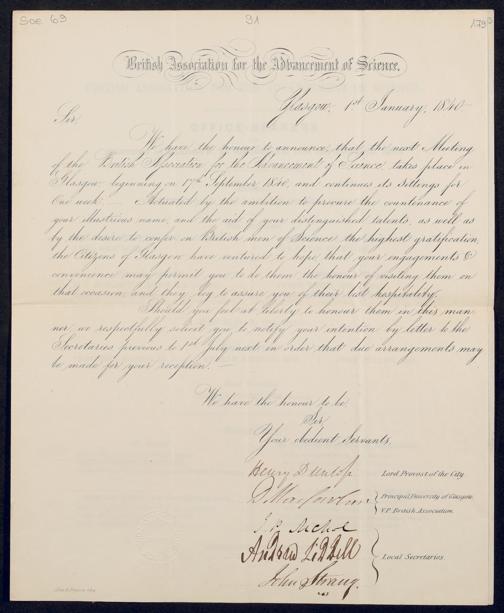 Soc. 69
91
British Association for the Advancement of Science.
Glasgow, 1st January, 1840
Sir
We have the honour to announce, that the next Meeting
of the British Association for the Advancement of Science, takes place in
Glasgow, beginning on 17th September 1840, and continues its Sittings for
One week. — Actuated by the ambition to procure the countenance of
your illustrious name, and the aid of your distinguished talents, as well as
by the desire to confer on British men of Science the highest gratification,
the Citizens of Glasgow have ventured to hope that your engagements &
convenience may permit you to do them the honour of visiting them on
that occasion, and they beg to assure you of their best hospitality.
Should you feel at liberty to honour them in this man
ner, we respectfully solicit you, to notify your intention by letter to the
Secretaries previous to 1st July next in order that due arrangements may
be made for your reception. —
We have the honour to be
Sir
Your obedient Servants.
Henry Dunlop Lord Provost of the City.
D. Macfarlan Principal, University of Glasgow.
V.P. British Association.
J. P. Nichol
Andrew Liddell Local Secretaries.
John Strang.